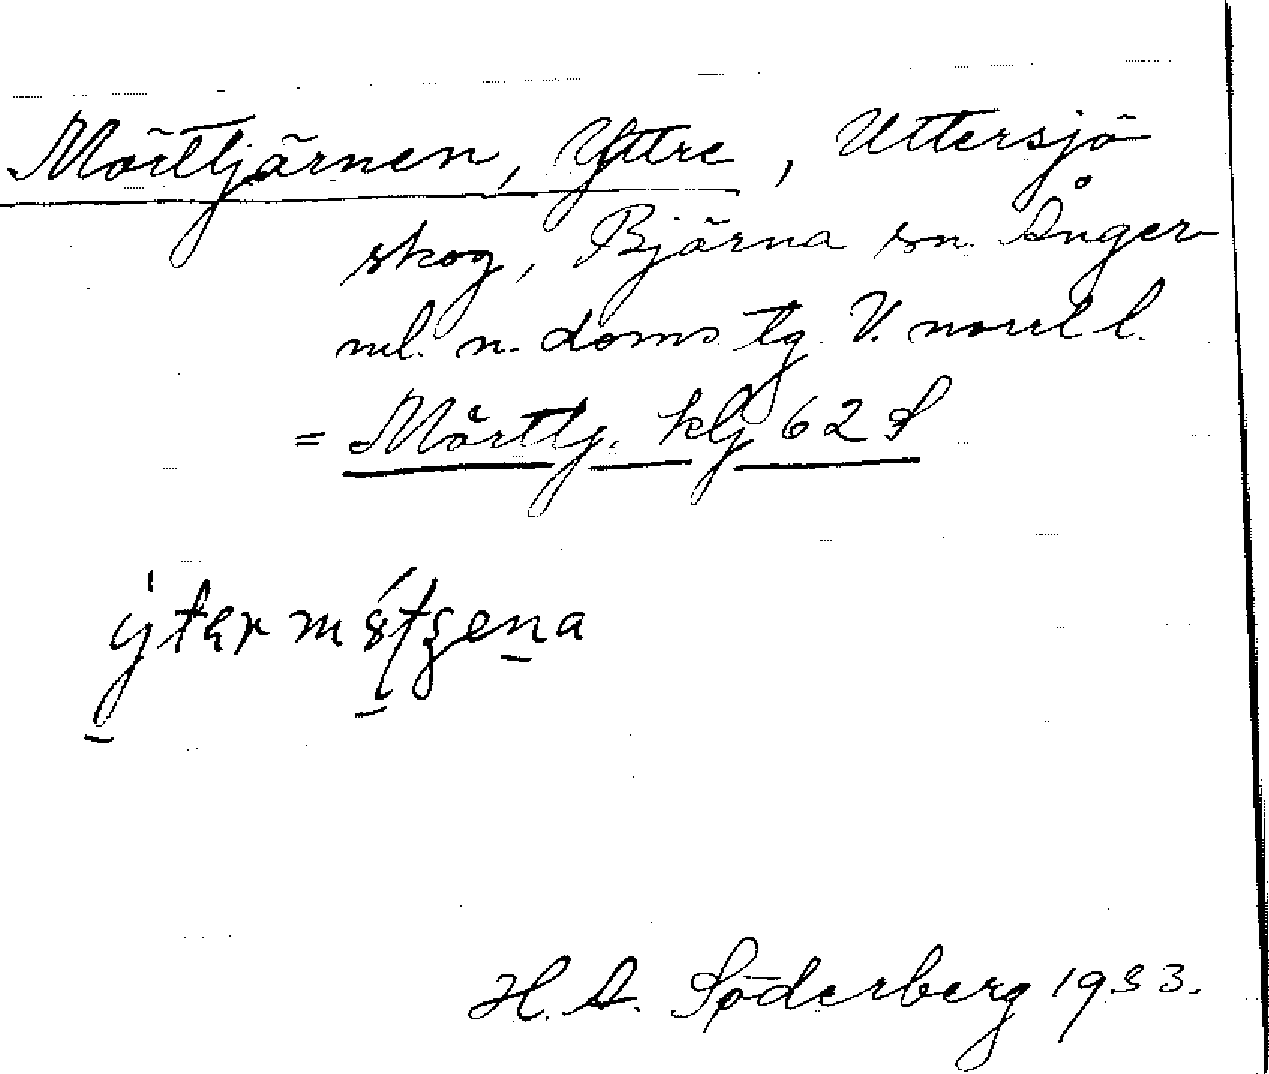 Mörttjärnen, Yttre, Uttersjö
skog, Bjärna sn. Ånger-
ml. n. doms. tg V. norrl l.
= Mörttj. klj 62 S
H. A. Söderberg 1933.